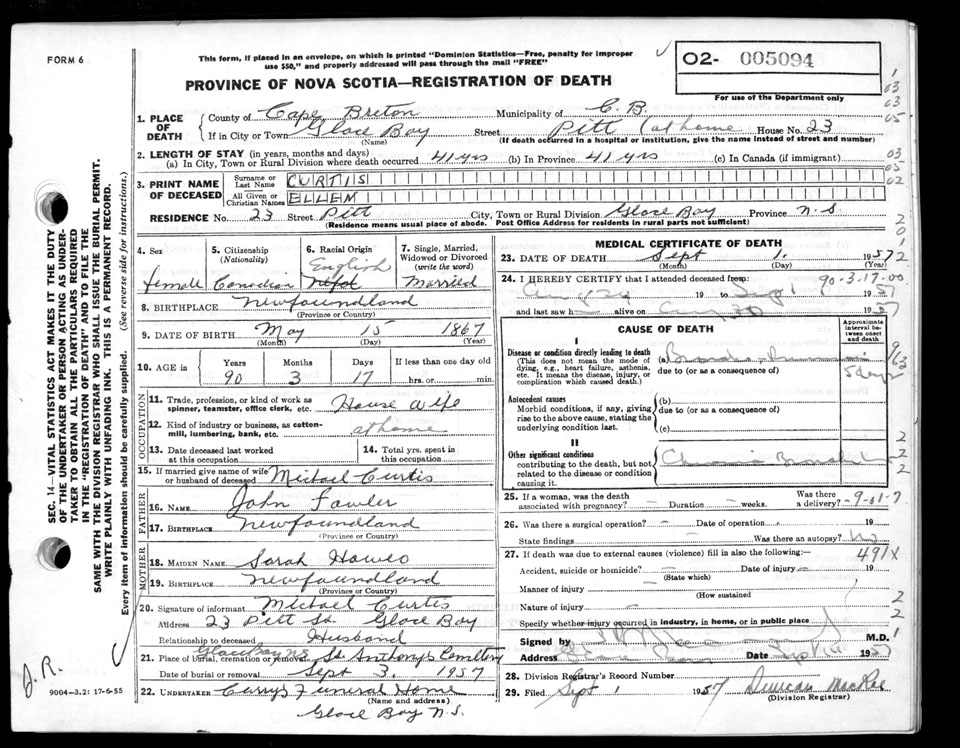 FORM 6
This form, if placed in an envelope, on which is printed "Dominion Statistics—Free, penalty for improper
use $50," and properly addressed will pass through the mail "FREE"
PROVINCE OF NOVA SCOTIA—REGISTRATION OF DEATH
O2- 005094
For use of the Department only
1. PLACE OF DEATH
County of Cape Breton Municipality of C. B.
If in City or Town Glace Bay Street Pitt (at home House No. 23
(Name) (If death occurred in a hospital or institution, give the name instead of street and number)
2. LENGTH OF STAY (in years, months and days)
(a) In City, Town or Rural Division where death occurred 41 yrs (b) In Province 41 yrs (c) In Canada (if immigrant)
3. PRINT NAME OF DECEASED
Surname or Last Name CURTIS
All Given or Christian Names ELLEN
RESIDENCE No. 23 Street Pitt City, Town or Rural Division Glace Bay Province N.S.
(Residence means usual place of abode. Post Office Address for residents in rural parts not sufficient)
4. Sex
female
5. Citizenship (Nationality)
Canadian
6. Racial Origin
English
Nfld
7. Single, Married, Widowed or Divorced (write the word)
Married
8. BIRTHPLACE Newfoundland
(Province or Country)
9. DATE OF BIRTH May 15 1867
(Month) (Day) (Year)
10. AGE in Years Months Days If less than one day old
90 3 17 hrs. or min.
OCCUPATION
11. Trade, profession, or kind of work as spinner, teamster, office clerk, etc. House wife
12. Kind of industry or business, as cotton-mill, lumbering, bank, etc. at home
13. Date deceased last worked at this occupation
14. Total yrs. spent in this occupation
15. If married give name of wife or husband of deceased Michael Curtis
FATHER
16. NAME John Fowler
17. BIRTHPLACE Newfoundland
(Province or Country)
MOTHER
18. MAIDEN NAME Sarah Howes
19. BIRTHPLACE Newfoundland
(Province or Country)
20. Signature of informant Michael Curtis
Address 23 Pitt St. Glace Bay
Relationship to deceased Husband
21. Place of burial, cremation or removal Glace Bay N.S. St. Anthony's Cemetery
Date of burial or removal Sept 3. 1957
22. UNDERTAKER Currys Funeral Home
(Name and address)
Glace Bay N.S.
MEDICAL CERTIFICATE OF DEATH
23. DATE OF DEATH Sept 1. 1957
(Month) (Day) (Year)
24. I HEREBY CERTIFY that I attended deceased from: 90-3.17-00
19 to Sept 1 1957
and last saw h alive on Aug 30 1957
CAUSE OF DEATH
Approximate interval between onset and death
I
Disease or condition directly leading to death
(This does not mean the mode of dying, e.g., heart failure, asthenia, etc. It means the disease, injury, or complication which caused death.)
(a) Broncho-Pneumonia 5 days
due to (or as a consequence of)
Antecedent causes
Morbid conditions, if any, giving rise to the above cause, stating the underlying condition last.
(b)
due to (or as a consequence of)
(c)
II
Other significant conditions
contributing to the death, but not related to the disease or condition causing it.
Chronic Bronchitis
25. If a woman, was the death associated with pregnancy? — Duration — weeks. Was there a delivery? -9-01-7
26. Was there a surgical operation? — Date of operation 19
State findings Was there an autopsy? No
27. If death was due to external causes (violence) fill in also the following:— 491X
Accident, suicide or homicide? Date of injury 19
(State which)
Manner of injury
(How sustained
Nature of injury
Specify whether injury occurred in industry, in home, or in public place
Signed by M.D.
Address Date Sept 1957
28. Division Registrar's Record Number
29. Filed Sept 1 1957 Duncan MacRae
(Division Registrar)
SEC. 14—VITAL STATISTICS ACT MAKES IT THE DUTY
OF THE UNDERTAKER OR PERSON ACTING AS UNDER-
TAKER TO OBTAIN ALL THE PARTICULARS REQUIRED
IN THE "REGISTRATION OF DEATH" AND TO FILE THE
SAME WITH THE DIVISION REGISTRAR WHO SHALL ISSUE THE BURIAL PERMIT.
WRITE PLAINLY WITH UNFADING INK. THIS IS A PERMANENT RECORD.
Every item of information should be carefully supplied. (See reverse side for instructions.)
J.R.
9004-3.2: 17-6-55